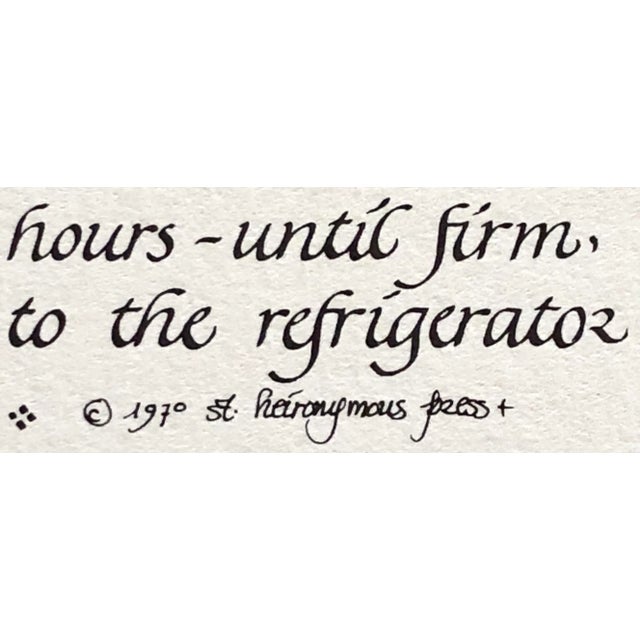 hours - until firm,
to the refrigerator
© 1970 st. heironymous press +